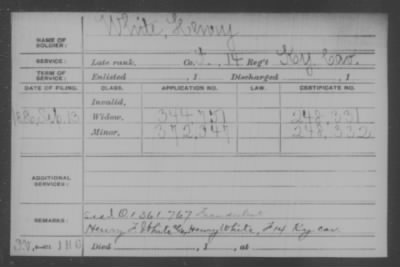 NAME OF SOLDIER: White, Henry
SERVICE: Late rank, Co. F, 14 Reg't Ky. Cav.
TERM OF SERVICE: Enlisted , 1 Discharged , 1
DATE OF FILING. CLASS. APPLICATION NO. LAW. CERTIFICATE NO.
Invalid,
1886, Feb. 13 Widow, 344,751 248,331
Minor, 372,947 248,332
ADDITIONAL SERVICES:
REMARKS: O. 361.767
Henry F. White Henry White, F 14 Ky. cav.
Died , 1 , at